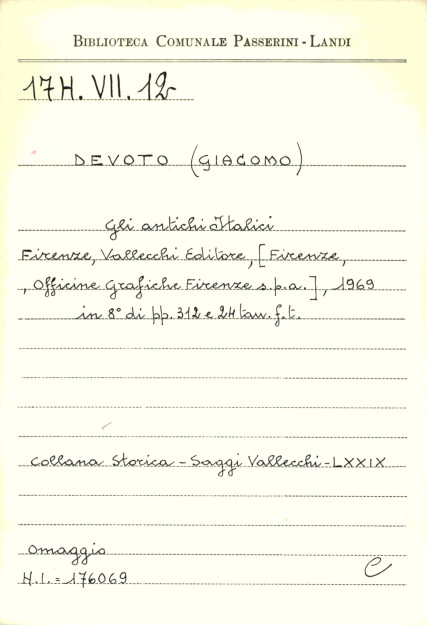 BIBLIOTECA COMUNALE PASSERINI - LANDI
17H. VII. 12
DEVOTO (GIACOMO)
Gli antichi Italici
Firenze, Vallecchi Editore, [Firenze,
, Officine Grafiche Firenze s.p.a.], 1969
in 8° di pp. 312 e 24 tav. f.t.
Collana Storica - Saggi Vallecchi - LXXIX
Omaggio
N.I. = 176069
e